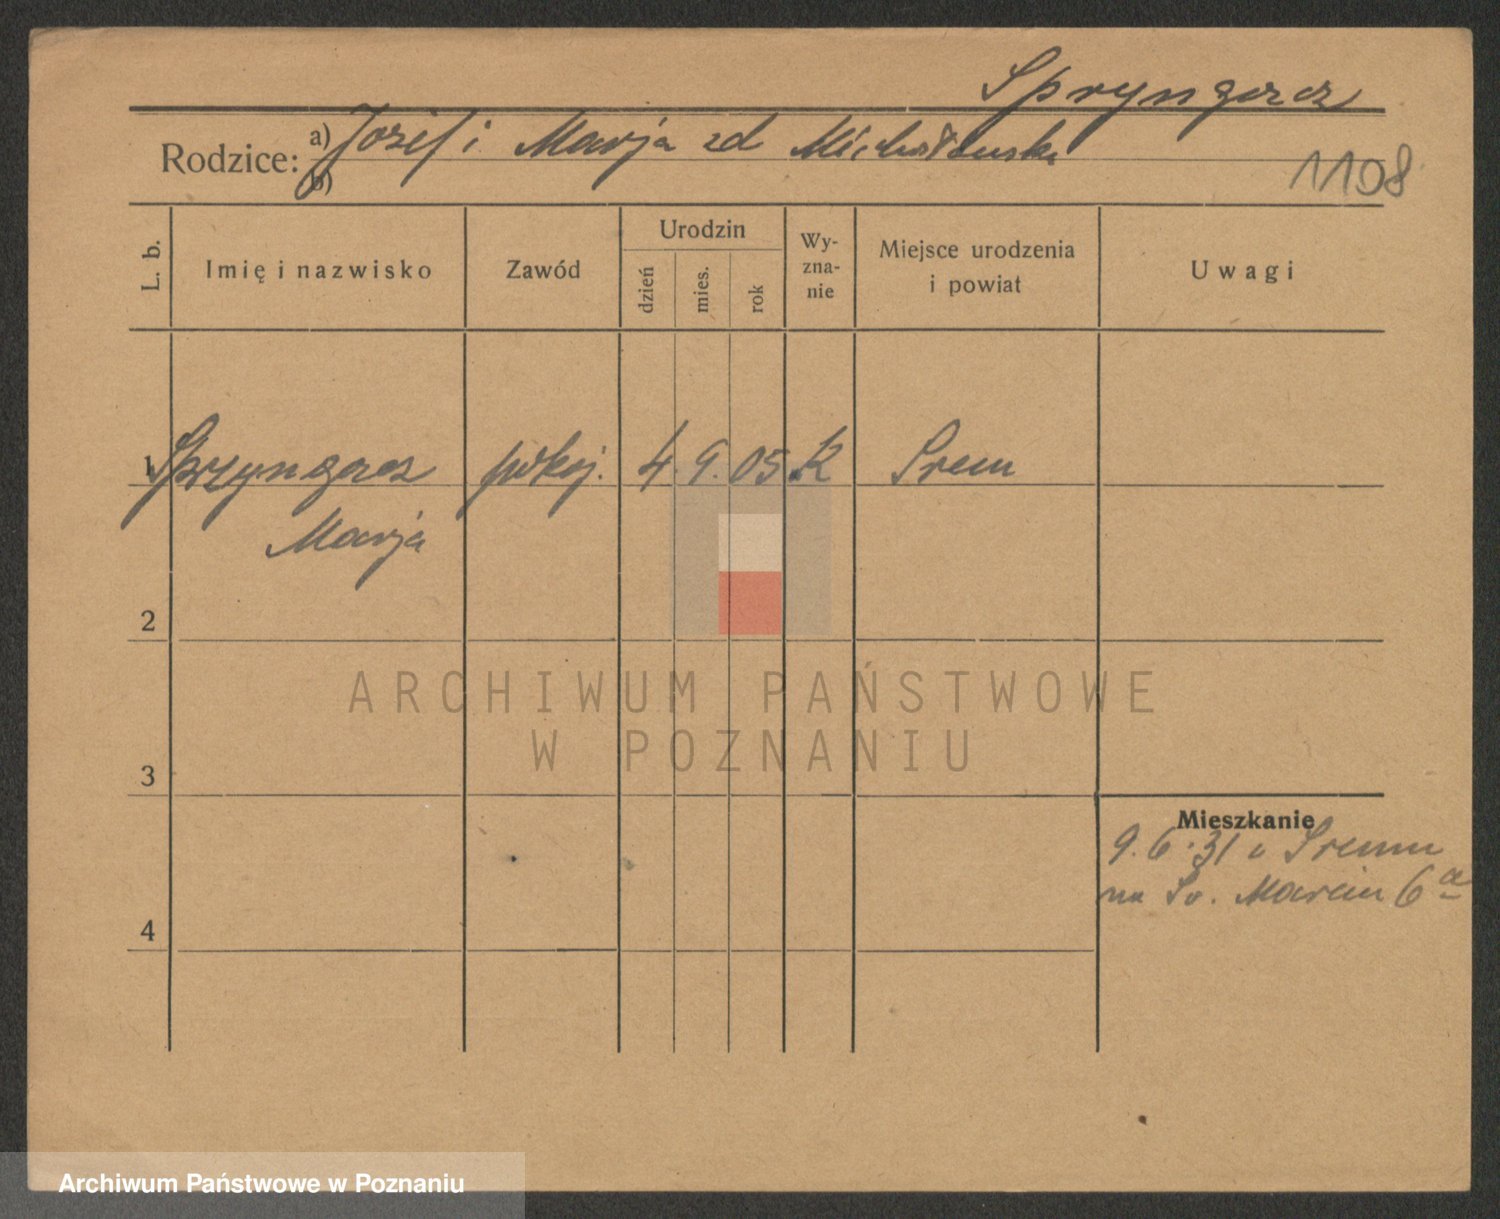 Spryngacz
Rodzice: a) Józef i Marja zd Michałowska
b)
1108
L. b.
Imię i nazwisko
Zawód
Urodzin
dzień
mies.
rok
Wy-
zna-
nie
Miejsce urodzenia
i powiat
Uwagi
1 Spryngacz pokoj. 4. 9. 05 K Srem
Marja
2
3
4
Mieszkanie
9. 6. 31 z Sremu
na Św. Marcin 6a
ARCHIWUM PAŃSTWOWE
W POZNANIU
Archiwum Państwowe w Poznaniu